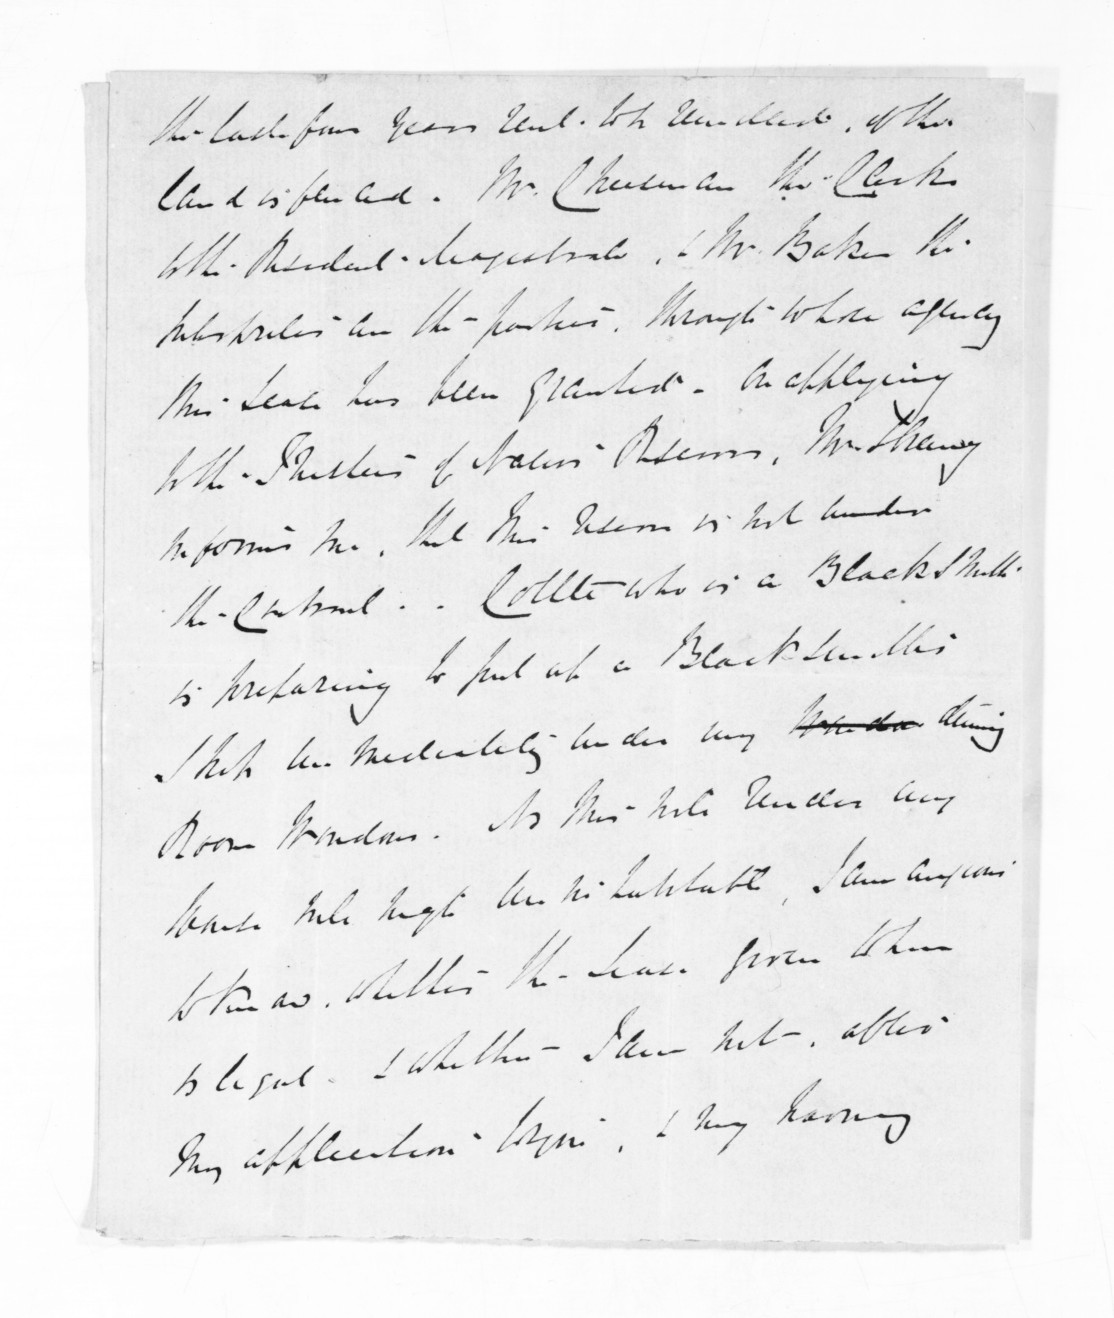 the last four years rent to be remitted, if the
land is fenced. Mr. Cheeseman the Clerk
to the Resident Magistrate, & Mr. Baker the
Interpreter are the parties, through whose agency
this Lease has been granted. On applying
to the Trustees of Native Reserves, Mr.
informs me, that this reserve is not under
the Control. . Collett who is a BlackSmith
is preparing to put up a Blacksmiths
Shop immediately under my dining
Room Windows. As this will render my
house well nigh uninhabitable, I am anxious
to know, whether the Lease given to him
is legal. & whether I am not, after
my application to you, & my having